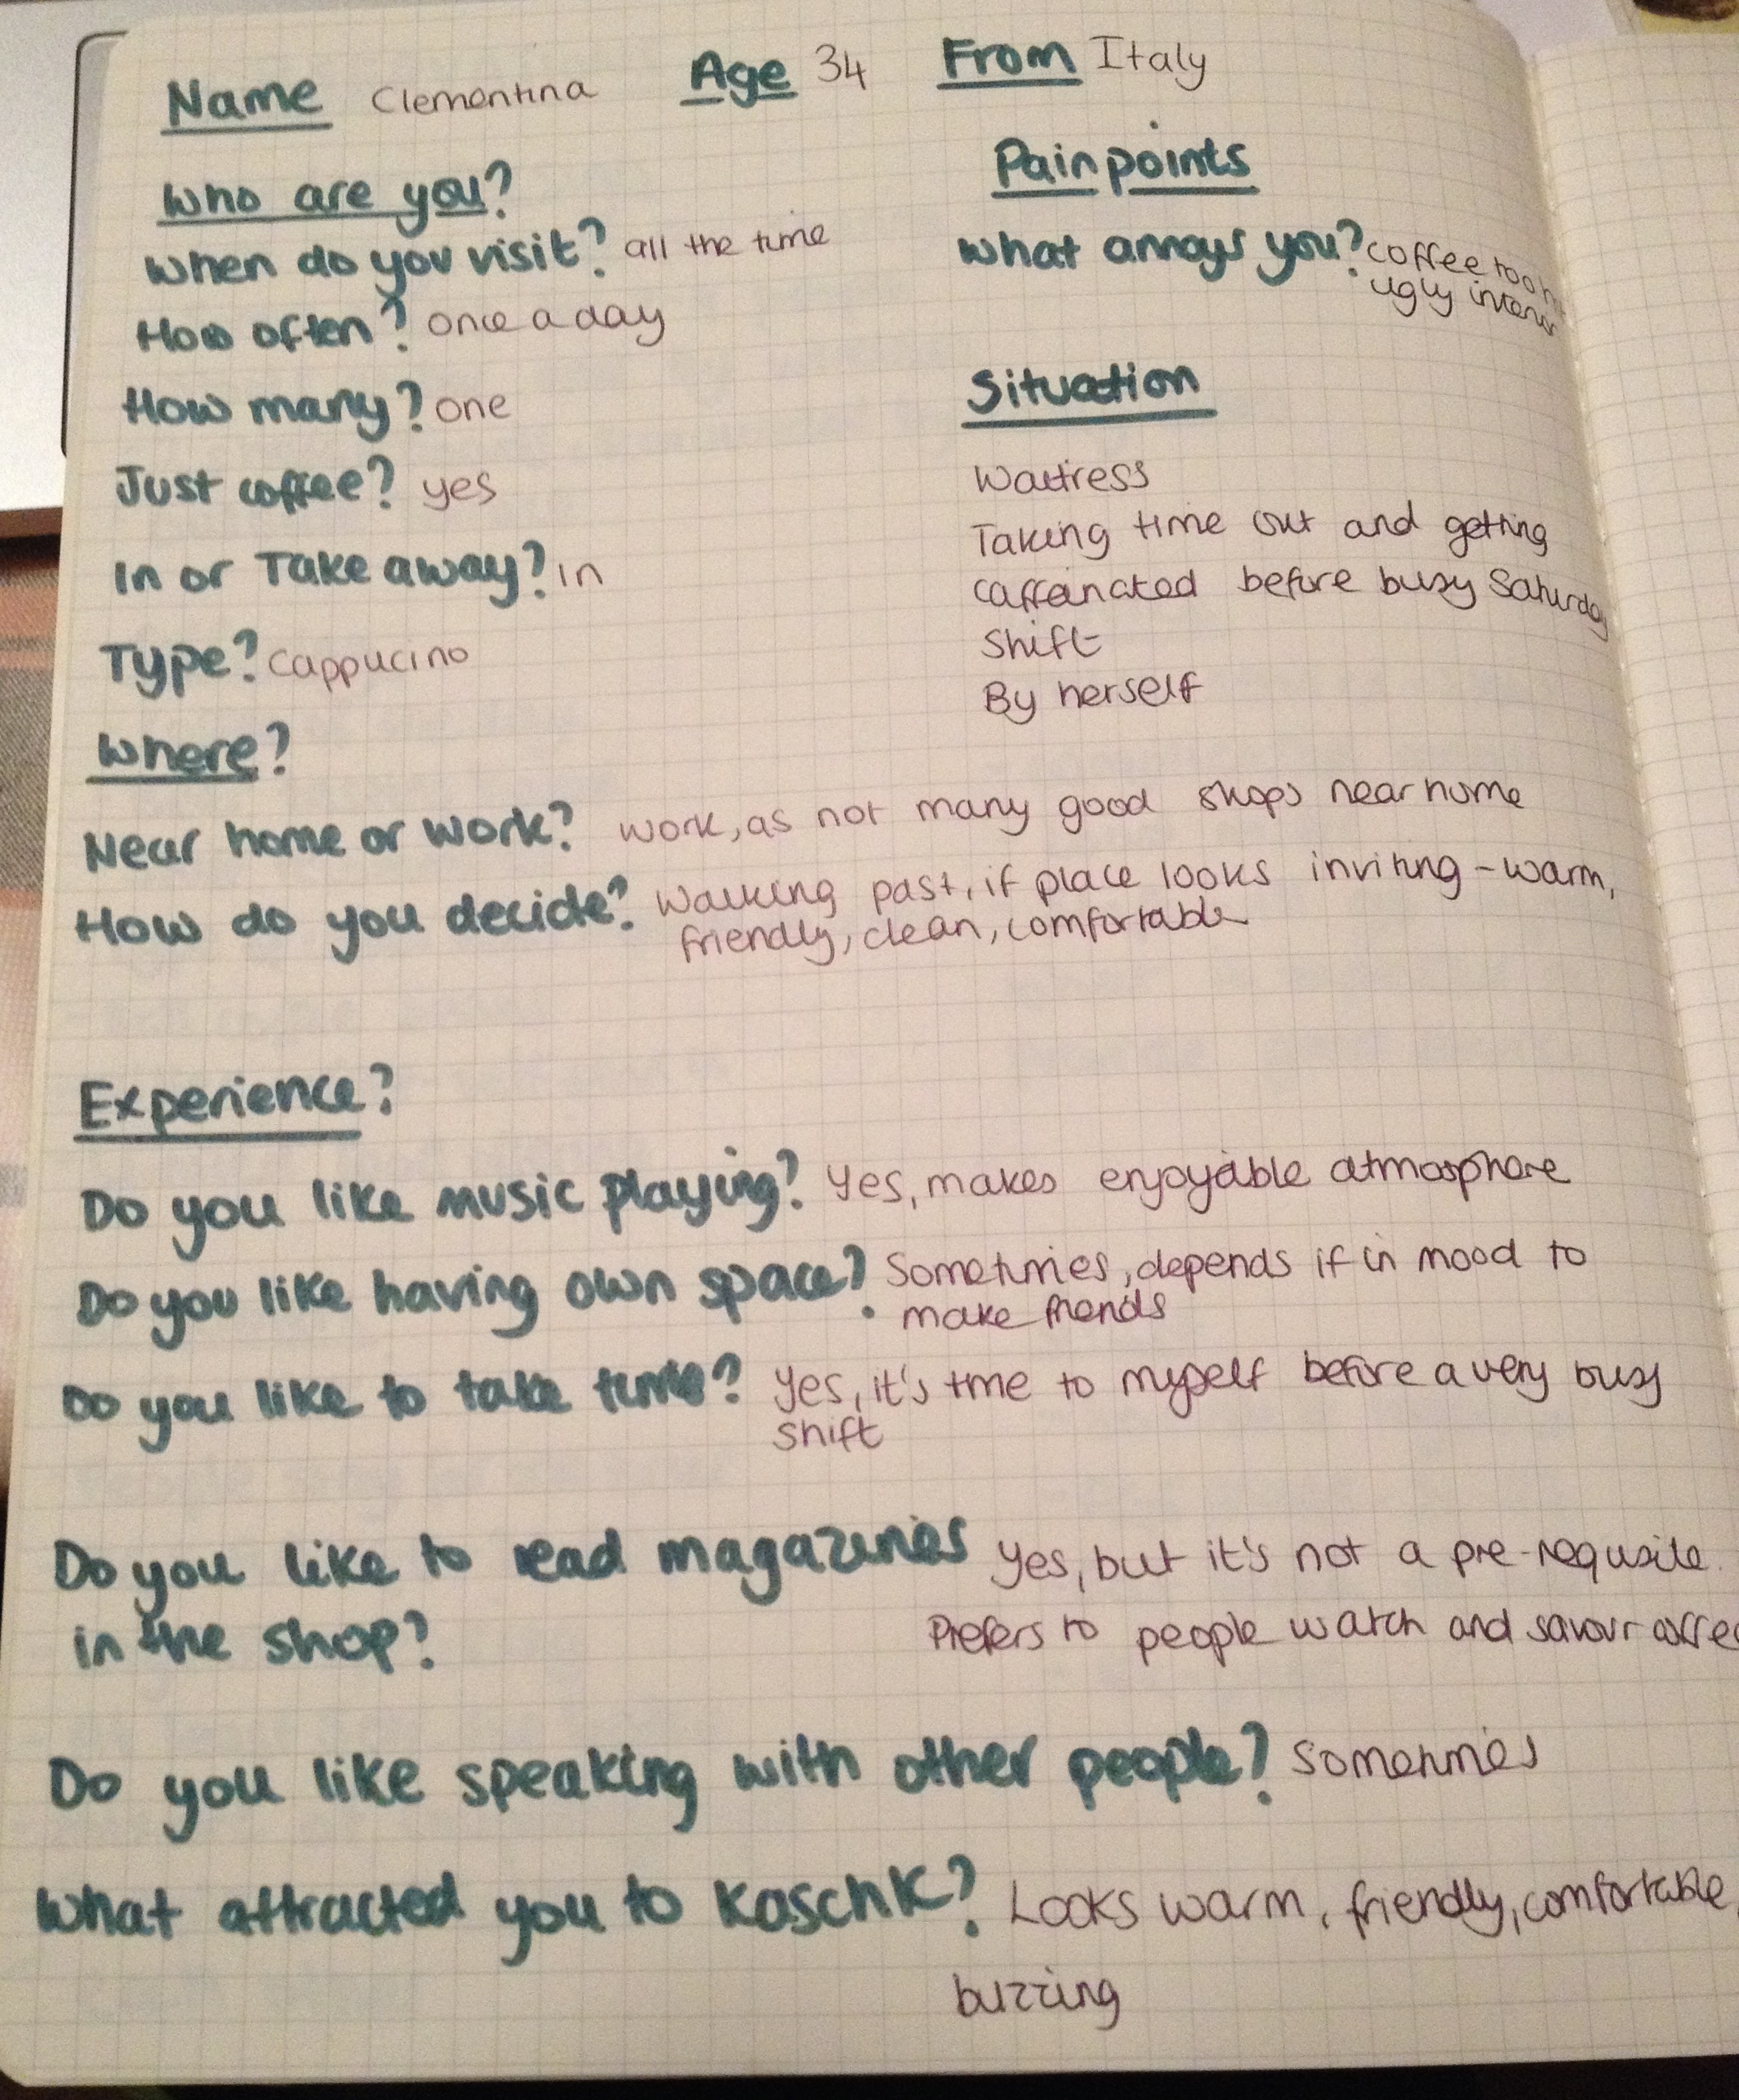 Name Clementina Age 34 From Italy
Who are you?
When do you visit? all the time
How often? once a day
How many? one
Just coffee? yes
In or Take away? in
Type? Cappucino
Pain points
What annoys you? coffee too
ugly interior
Situation
Waitress
Taking time out and getting
caffeinated before busy Saturday
Shift
By herself
Where?
Near home or work? work, as not many good shops near home
How do you decide? Walking past, if place looks inviting - warm,
friendly, clean, comfortable
Experience?
Do you like music playing? Yes, makes enjoyable atmosphere
Do you like having own space? Sometimes, depends if in mood to
make friends
Do you like to take time? Yes, it's time to myself before a very busy
shift
Do you like to read magazines Yes, but it's not a pre-requsite.
in the shop? Prefers to people watch and savour coffee
Do you like speaking with other people? Sometimes
What attracted you to Kaschk? Looks warm, friendly, comfortable,
buzzing